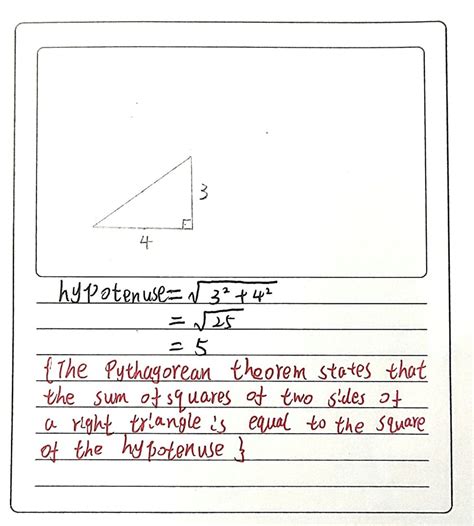 3
4
hypotenuse = √3² + 4²
= √25
= 5
{The Pythagorean theorem states that
the sum of squares of two sides of
a right triangle is equal to the square
of the hypotenuse }